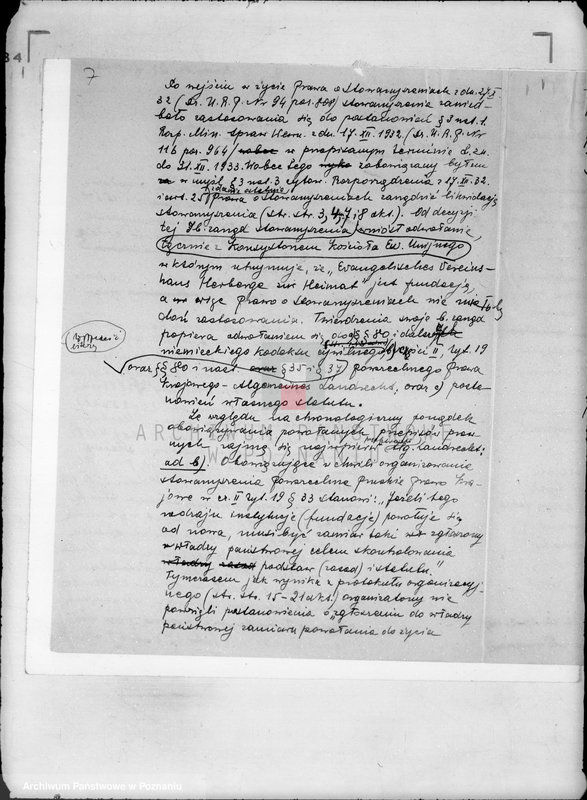 7
Po wejściu w życie Prawa o stowarzyszeniach z dn. 27.X
32 (Dz. U. R. P. Nr 94 poz. 808) stowarzyszenie zanied-
bało zastosowania się do postanowień § 3 ust. 1
Rozp. Min. Spraw Wewn. z dn. 17. XII. 1932. (Dz. U. R. P. Nr
116 poz. 964) w przepisanym terminie d. zn.
do 31. XII. 1933. Wobec tego zobowiązany był
w myśl § 3 ust. 3 cytow. Rozporządzenia z 17. XII. 32.
i art. 25 Prawa o stowarzyszeniach zarządzić likwidację
stowarzyszenia (str. str. 3, 4, 7 i 8 akt.). Od decyzji
tej b. zarząd stowarzyszenia wniósł odwołanie,
łącznie z Konsystorzem Kościoła Ew. Unijnego
w którym utrzymuje, że „Evangelisches Vereins-
haus Herberge zur Heimat" jest fundacją,
a więc Prawo o stowarzyszeniach nie ma
doń zastosowania. Twierdzenia swoje b. zarząd
popiera odwołaniem się do §§ 80 i dalszych
niemieckiego kodeksu cywilnego, części II, tyt. 19
wstawić
oraz §§ 80 i nast. oraz § 35 i 37 powszechnego prawa
krajowego - Allgemeines Landrecht, oraz c) posta-
nowień własnego statutu.
Ze względu na chronologiczny porządek
obowiązywania powołanych przepisów praw-
nych zajmę się najpierw Allg. Landrecht:
ad b). Obowiązujące w chwili organizowania
stowarzyszenia powszechne pruskie prawo kra-
jowe w cz. II tyt. 19 § 33 stanowi: „Jeżeli tego
rodzaju instytucje (fundacje) powołuje się
od nowa, musi być zamiar taki zgłoszony
władzy państwowej celem skontrolowania
podstaw (zasad) i statutu."
Tymczasem jak wynika z protokułu organizacyj-
nego (str. str. 15-21 akt.) organizatorzy nie
powzięli postanowienia o „zgłoszeniu do władzy
państwowej zamiaru powołania do życia
ARCHIWUM PAŃSTWOWE
W POZNANIU
Archiwum Państwowe w Poznaniu